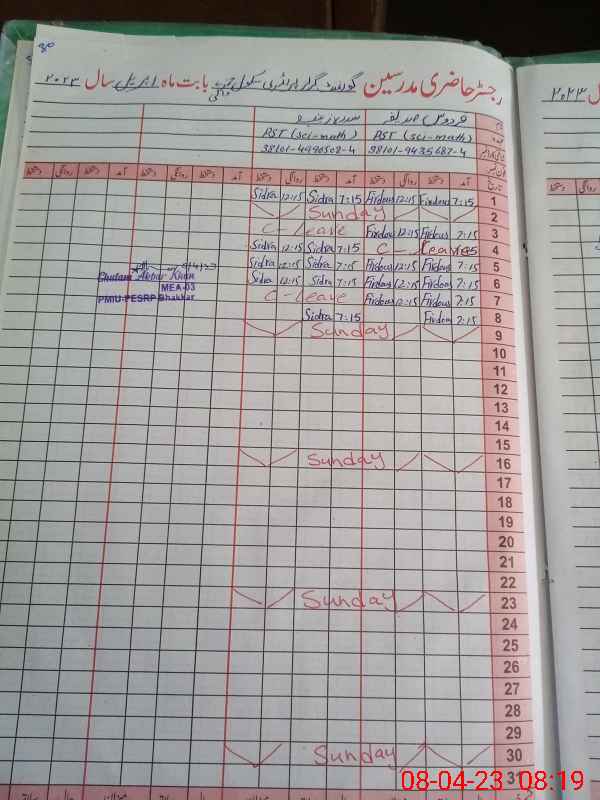 رجسٹر حاضری مدرسین گورنمنٹ گرلز پرائمری سکول بابت ماہ اپریل سال ۲۰۲۳
فردوس صدیقہ
PST (sci-math) PST (sci-math)
38101-9435687-4 38101-4990502-4
تاریخ آمد دستخط روانگی دستخط آمد دستخط روانگی دستخط آمد دستخط روانگی دستخط آمد دستخط روانگی دستخط
Sidra 12:15 Sidra 7:15 Firdous 12:15 Firdous 7:15 1
Sunday 2
C-Leave Firdous 12:15 Firdous 7:15 3
Sidra 12:15 Sidra 7:15 C-Leave 4
Sidra 12:15 Sidra 7:15 Firdous 12:15 Firdous 7:15 5
Sidra 12:15 Sidra 7:15 Firdous 12:15 Firdous 7:15 6
C-Leave Firdous 12:15 Firdous 7:15 7
Sidra 7:15 Firdous 7:15 8
Sunday 9
10
11
12
13
14
15
Sunday 16
17
18
19
20
21
22
Sunday 23
24
25
26
27
28
29
Sunday 30
31
Ghulam Akbar Khan
MEA-03
PMIU-PESRP Bhakkar
سال ۲۰۲۳
08-04-23 08:19